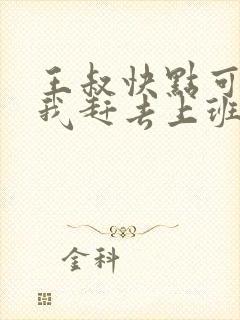 王叔快點可
我赶去上班
金科